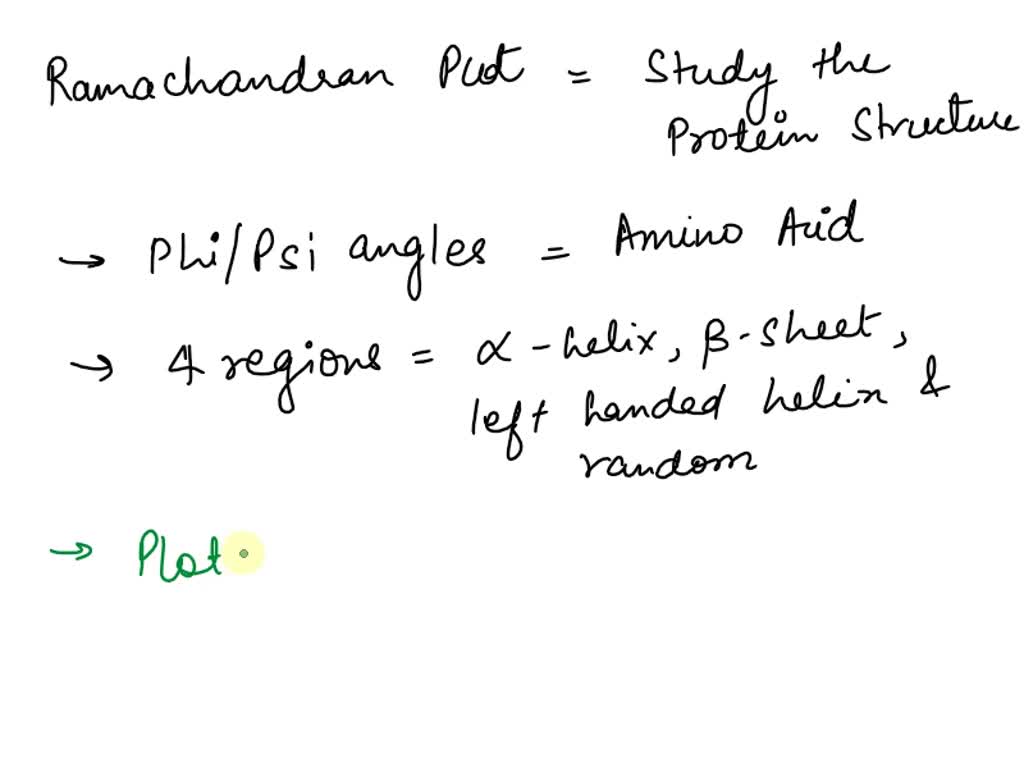 Ramachandran Plot = Study the
Protein Structure
→ Phi/Psi angles = Amino Acid
→ 4 regions = α-helix, β-sheet,
left handed helix &
random
→ Plot